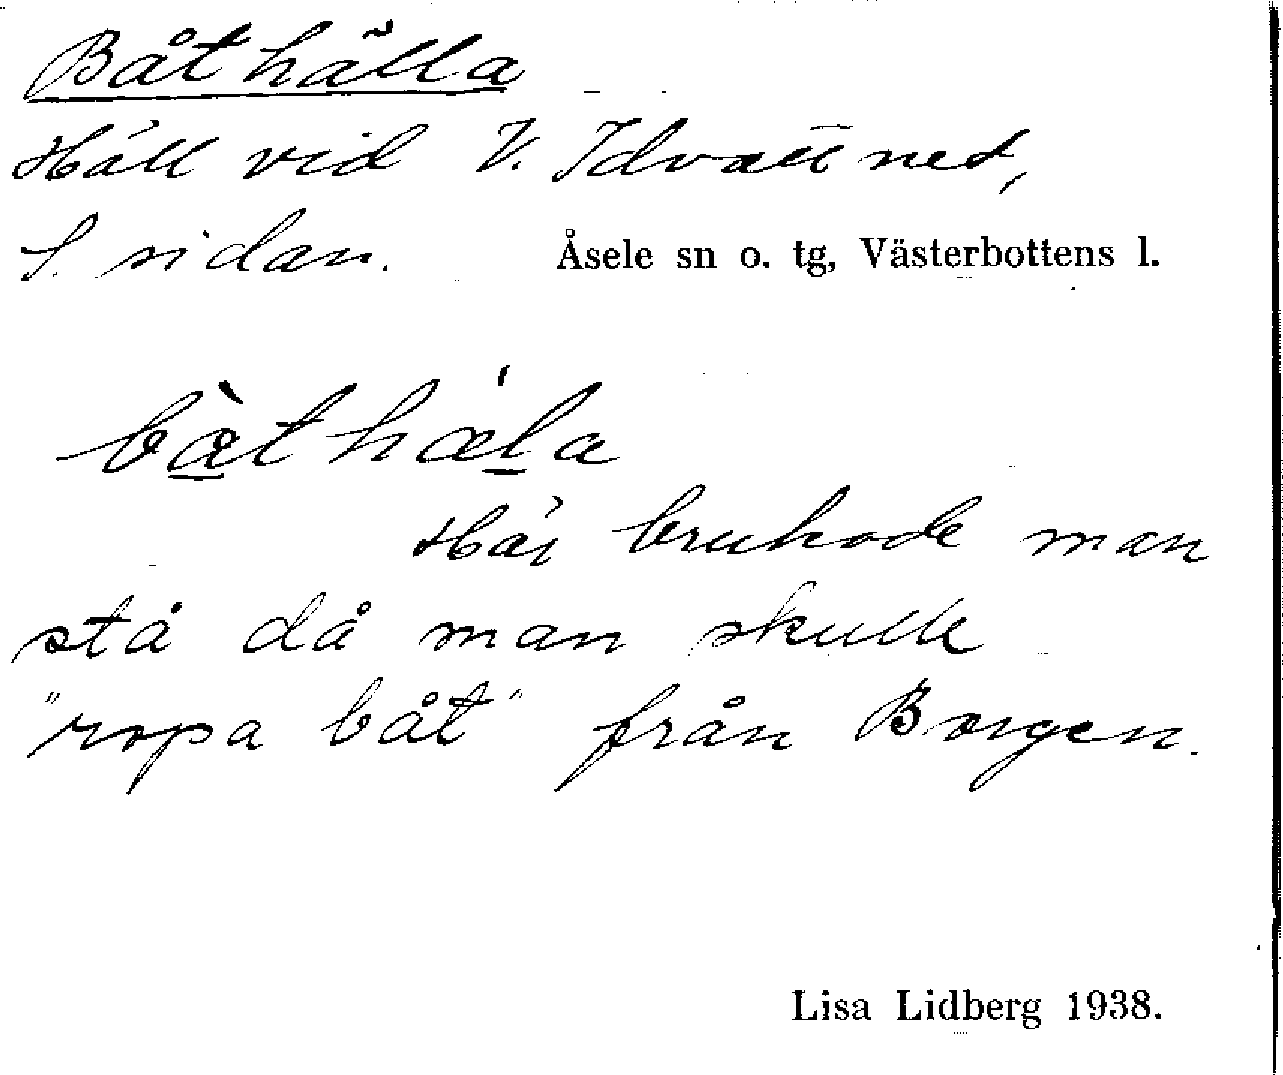 Båthälla
Häll vid V. Idvattnet,
S. sidan. Åsele sn o. tg, Västerbottens l.
bàthæ̍l̲a
Här brukade man
stå då man skulle
"ropa båt" från Borgen.
Lisa Lidberg 1938.